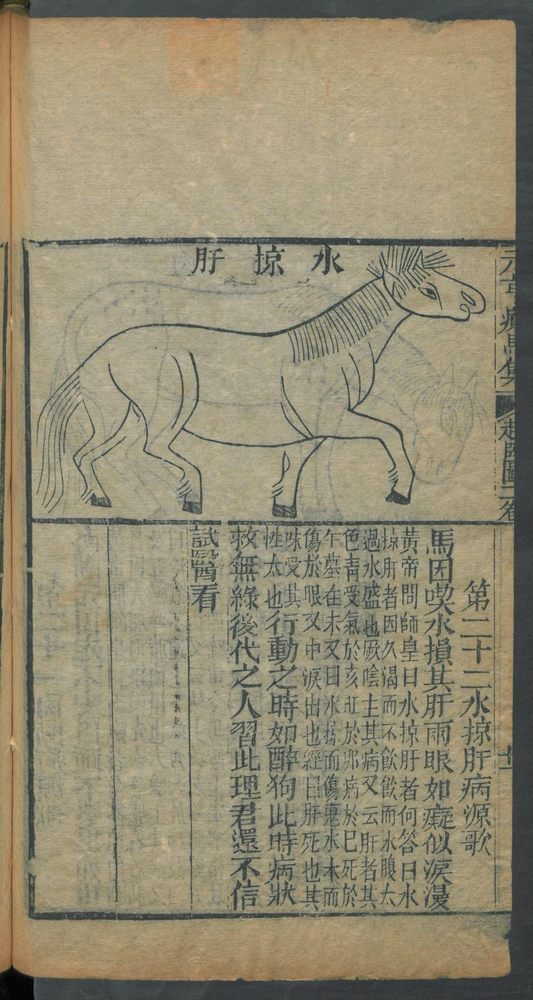 水掠肝
元亨療馬集 起臥圖二卷
第二十二水掠肝病源歌
馬因喫水損其肝兩眼如癡似淚漫
黃帝問師皇曰水掠肝者何答曰水
掠肝者因久渴而不飲飲而水腹太
過水盛也厥陰主其病又云肝者其
色青受氣於亥旺於卯病於巳死於
午墓在未又曰水掠而傷毫水木而
傷於眼又中淚出也經曰肝死也其
味受其
性太也行動之時如醉狗此時病狀
救無緣後代之人習此理君還不信
試醫看